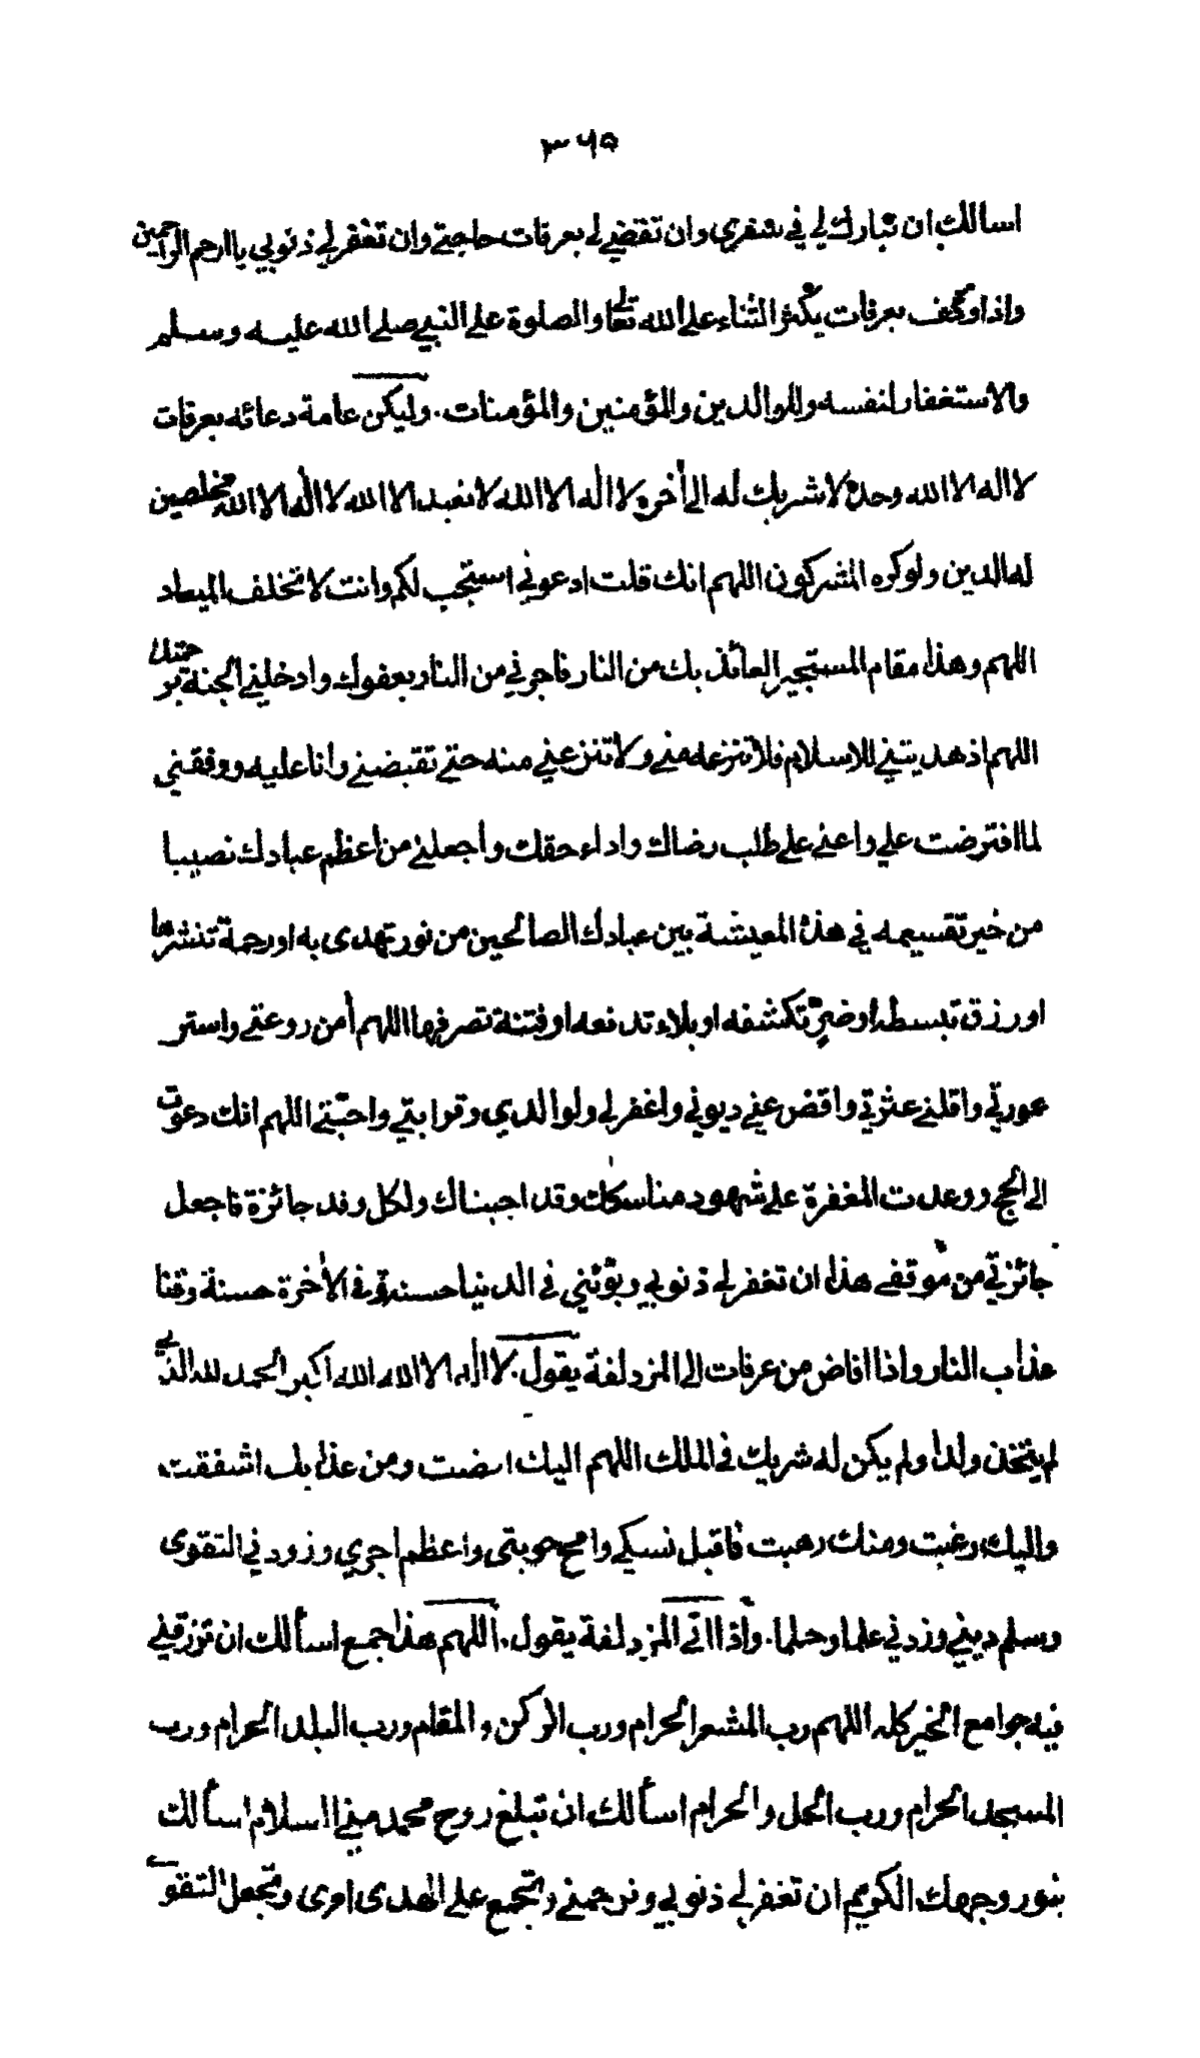 ٣٦٥
اسالك ان تبارك لي في سفري وان تقضي لي بعرفات حاجتي وان تغفر لي ذنوبي يا ارحم الراحمين
واذا وقف بعرفات يكثر الثناء على الله تعالى والصلوة على النبي صلى الله عليه وسلم
والاستغفار لنفسه وللوالدين والمؤمنين والمؤمنات. وليكن عامة دعائه بعرفات
لا اله الا الله وحده لا شريك له الى أخره لا اله الا الله لا نعبد الا الله لا اله الا الله مخلصين
له الدين ولو كره المشركون اللهم انك قلت ادعوني استجب لكم وانت لا تخلف الميعاد
اللهم وهذا مقام المستجير العائذ بك من النار فاجرني من النار بعفوك وادخلني الجنة برحمتك
اللهم اذ هديتني للاسلام فلا تنزعه مني ولا تنزعني منه حتى تقبضني وانا عليه ووفقني
لما افترضت علي واعني على طلب رضاك واداء حقك واجعلني من اعظم عبادك نصيبا
من خير تقسيمه في هذه المعيشة بين عبادك الصالحين من نور تهدى به او رحمة تنشرها
او رزق تبسطه او ضرّ تكشفه او بلاء تدفعه او فتنة تصرفها اللهم أمن روعتي واستر
عورتي واقلني عثرتي واقض عني ديوني واغفر لي ولوالدي وقرابتي واحبّتي اللهم انك دعوت
الى الحج ووعدت المغفرة على شهود مناسكك وقد اجبناك ولكل وفد جائزة فاجعل
جائزتي من موقفي هذا ان تغفر لي ذنوبي وتؤتني في الدنيا حسنة وفي الأخرة حسنة وقنا
عذاب النار واذا افاض من عرفات الى المزدلفة يقول. لا اله الا الله الله اكبر الحمد لله الذي
لم يتخذ ولدا ولم يكن له شريك في الملك اللهم اليك افضت ومن عذابك اشفقت
واليك رغبت ومنك رهبت فاقبل نسكي وامح حوبتي واعظم اجري وزودني التقوى
وسلم ديني وزدني علما وحلما. واذا اتى المزدلفة يقول. اللهم هذا جمع اسألك ان ترزقني
فيه جوامع الخير كله اللهم رب المشعر الحرام ورب الركن والمقام ورب البلد الحرام ورب
المسجد الحرام ورب الحل والحرام اسألك ان تبلغ روح محمد مني السلام اسألك
بنور وجهك الكريم ان تغفر لي ذنوبي وترحمني وتجمع على الهدى امرى وتجعل التقوى